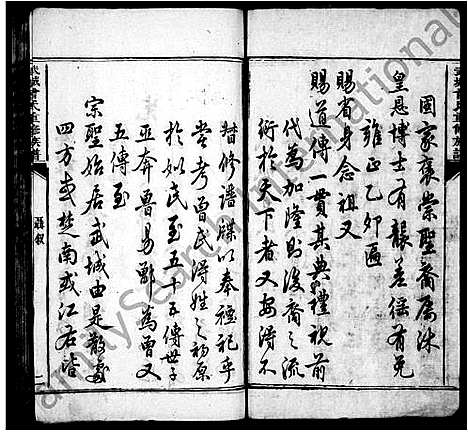 武城曾氏重修族譜
國家褒崇聖裔屬沐
皇恩博士有襲差徭有免
雍正乙卯匾
賜省身念祖又
賜道傳一貫其典禮視前
代為加隆則後裔之流
衍於天下者又安得不
督修譜牒以奉禋祀乎
嘗考曾氏得姓之初原
於姒氏至五十五傳世子
巫奔魯易鄫為曾又
五傳至
宗聖始居武城由是散處
四方或楚南或江右皆
武城曾氏重修族譜
聶叙
二
FamilySearch International